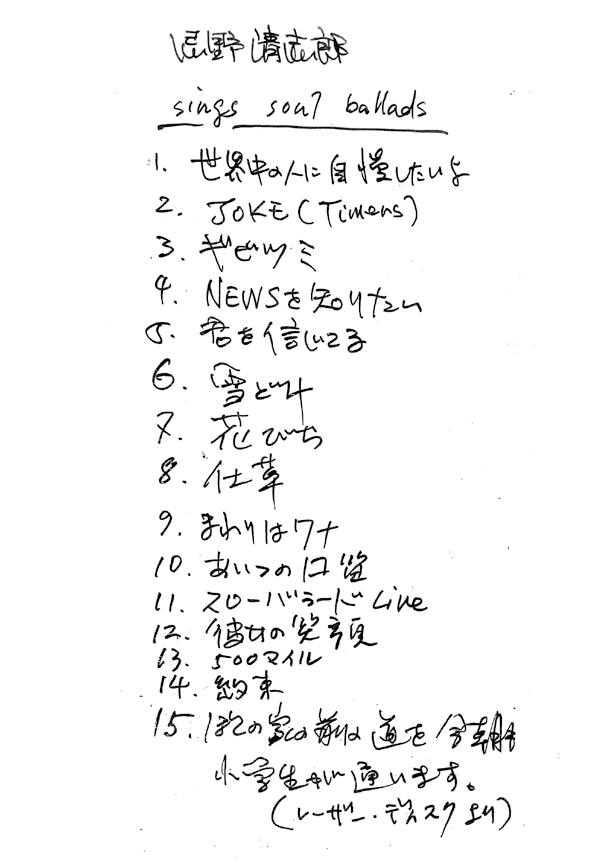 忌野清志郎
sings soul ballads
1. 世界中の人に自慢したいよ
2. JOKE (Timers)
3. ギビツミ
4. NEWSを知りたい
5. 君を信じてる
6. 雪どけ
7. 花びら
8. 仕草
9. まわりはワナ
10. あいつの口笛
11. スローバラード Live
12. 彼女の笑顔
13. 500マイル
14. 約束
15. ぼくの家の前の道を今朝
小学生が通います。
(レーザー・ディスクより)